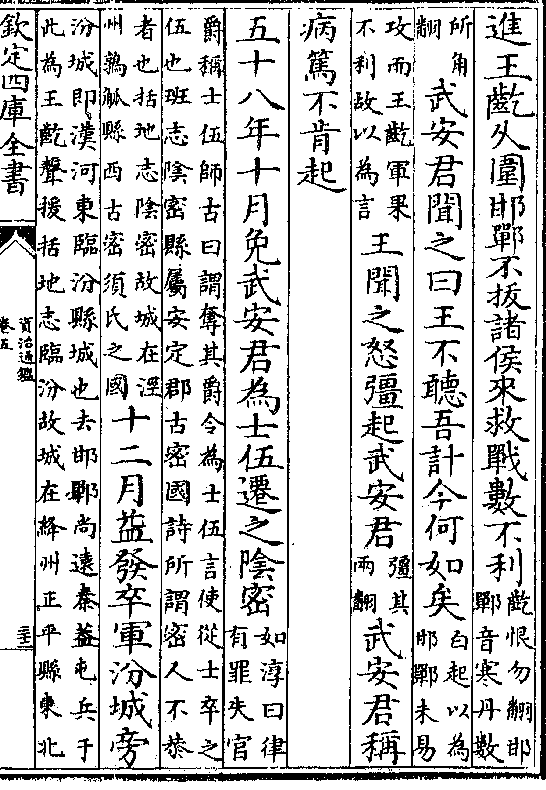 進王齕乆圍邯鄲不拔諸侯來救戰數不利齕恨勿翻邯
鄲音寒丹數
所角
翻武安君聞之曰王不聽吾計今何如矣白起以為
邯鄲未易
攻而王齕軍果
不利故以為言王聞之怒彊起武安君彊其
兩翻武安君稱
病篤不肯起
五十八年十月免武安君為士伍遷之隂密如淳曰律
有罪失官
爵稱士伍師古曰謂奪其爵今為士伍言使從士卒之
伍也班志隂密縣屬安定郡古密國詩所謂密人不恭
者也括地志隂密故城在涇
州鶉觚縣西古密須氏之國十二月益發卒軍汾城旁
汾城即漢河東臨汾縣城也去邯鄲尚遠秦益屯兵于
此為王齕聲援括地志臨汾故城在絳州正平縣東北
欽定四庫全書
資治通鑑
卷五